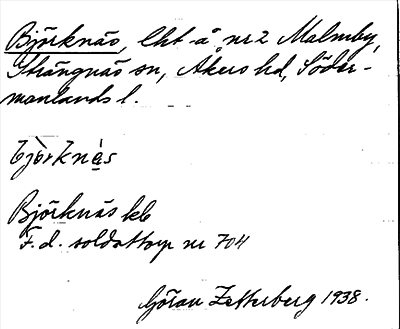 Björknäs, lht å nr 2 Malmby,
Strängnäs sn, Åkers hd, Söder-
manlands l.
bjö̀rknás
Björknäs kb
F. d. soldattorp nr 704
Göran Zetterberg 1938.